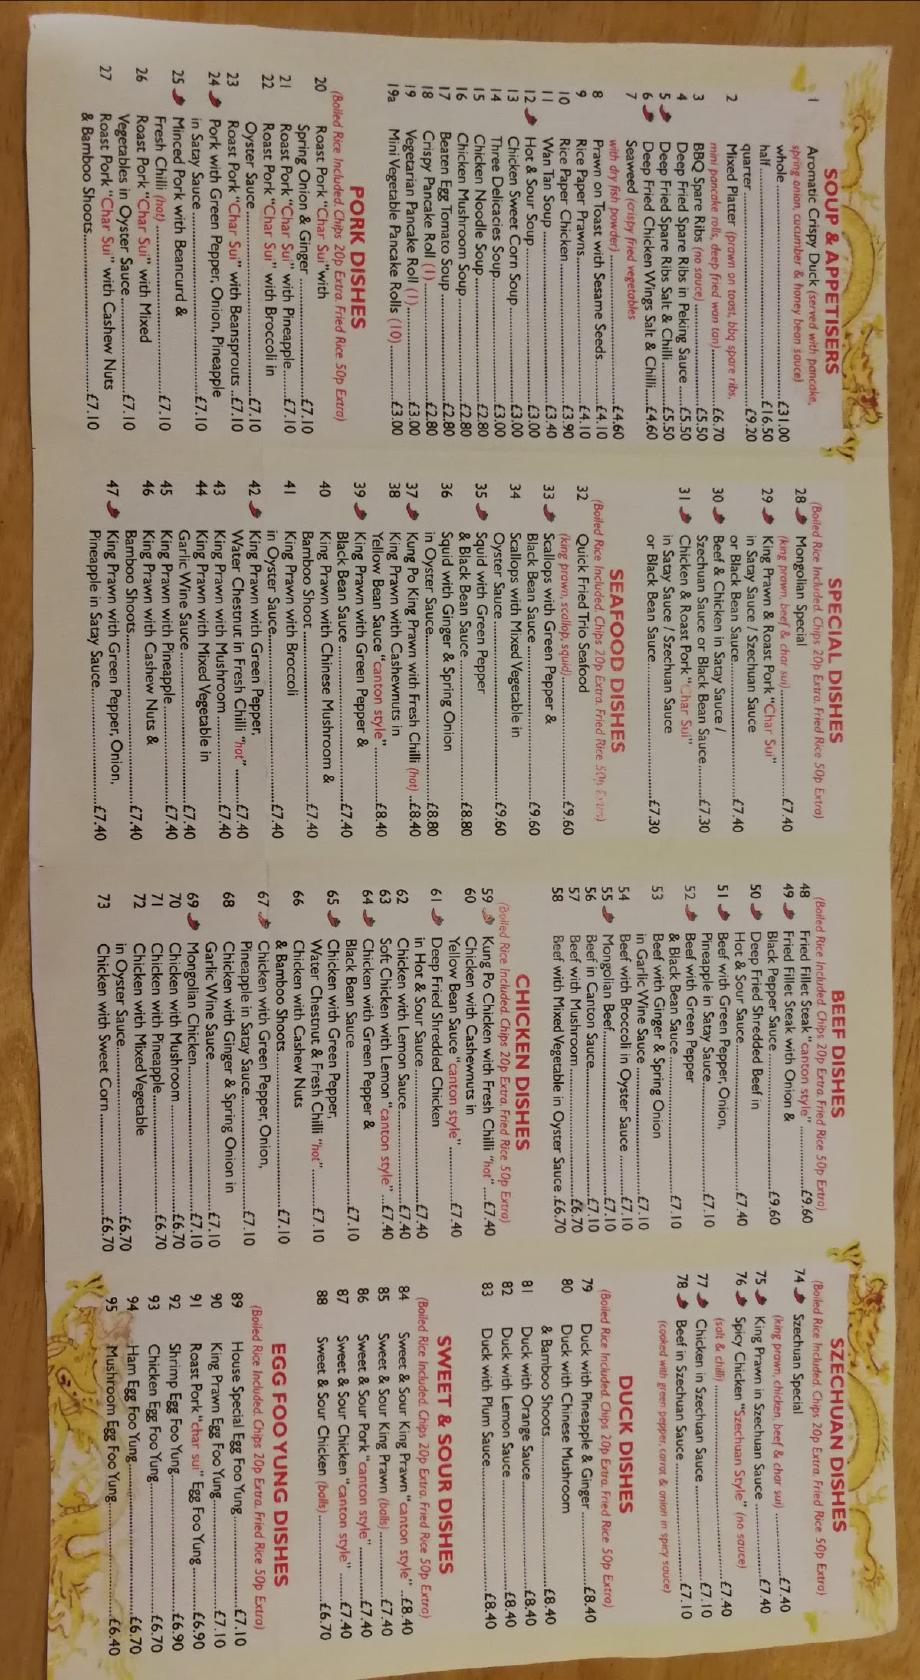 SOUP & APPETISERS
1 Aromatic Crispy Duck (served with pancake,
spring onion cucumber & honey bean sauce)
whole..........£31.00
half..........£16.50
quarter..........£9.20
2 Mixed Platter (prawn on toast, bbq spare ribs,
mini pancake rolls, deep fried wan tan)..........£6.70
3 BBQ Spare Ribs (no sauce)..........£5.50
4 Deep Fried Spare Ribs in Peking Sauce..........£5.50
5 Deep Fried Spare Ribs Salt & Chilli..........£5.50
6 Deep Fried Chicken Wings Salt & Chilli....£4.60
7 Seaweed (crispy fried vegetables
with dry fish powder)..........£4.60
8 Prawn on Toast with Sesame Seeds..........£4.10
9 Rice Paper Prawns..........£4.10
10 Rice Paper Chicken..........£3.90
11 Wan Tan Soup..........£3.40
12 Hot & Sour Soup..........£3.00
13 Chicken Sweet Corn Soup..........£3.00
14 Three Delicacies Soup..........£3.00
15 Chicken Noodle Soup..........£2.80
16 Chicken Mushroom Soup..........£2.80
17 Beaten Egg Tomato Soup..........£2.80
18 Crispy Pancake Roll (1)..........£2.80
19 Vegetarian Pancake Roll (1)..........£3.00
19a Mini Vegetable Pancake Rolls (10)..........£3.00
PORK DISHES
(Boiled Rice Included. Chips 20p Extra. Fried Rice 50p Extra)
20 Roast Pork "Char Sui" with
Spring Onion & Ginger..........£7.10
21 Roast Pork "Char Sui" with Pineapple.....£7.10
22 Roast Pork "Char Sui" with Broccoli in
Oyster Sauce..........£7.10
23 Roast Pork "Char Sui" with Beansprouts..£7.10
24 Pork with Green Pepper, Onion, Pineapple
in Satay Sauce..........£7.10
25 Minced Pork with Beancurd &
Fresh Chilli (hot)..........£7.10
26 Roast Pork "Char Sui" with Mixed
Vegetables in Oyster Sauce..........£7.10
27 Roast Pork "Char Sui" with Cashew Nuts
& Bamboo Shoots..........£7.10
SPECIAL DISHES
(Boiled Rice Included. Chips 20p Extra. Fried Rice 50p Extra)
28 Mongolian Special
(king prawn, beef & char sui)..........£7.40
29 King Prawn & Roast Pork "Char Sui"
in Satay Sauce / Szechuan Sauce
or Black Bean Sauce..........£7.40
30 Beef & Chicken in Satay Sauce /
Szechuan Sauce or Black Bean Sauce.....£7.30
31 Chicken & Roast Pork "Char Sui"
in Satay Sauce / Szechuan Sauce
or Black Bean Sauce..........£7.30
SEAFOOD DISHES
(Boiled Rice Included. Chips 20p Extra. Fried Rice 50p Extra)
32 Quick Fried Trio Seafood
(king prawn, scallop, squid)..........£9.60
33 Scallops with Green Pepper &
Black Bean Sauce..........£9.60
34 Scallops with Mixed Vegetable in
Oyster Sauce..........£9.60
35 Squid with Green Pepper
& Black Bean Sauce..........£8.80
36 Squid with Ginger & Spring Onion
in Oyster Sauce..........£8.80
37 Kung Po King Prawn with Fresh Chilli (hot)..£8.40
38 King Prawn with Cashewnuts in
Yellow Bean Sauce "canton style"..........£8.40
39 King Prawn with Green Pepper &
Black Bean Sauce..........£7.40
40 King Prawn with Chinese Mushroom &
Bamboo Shoot..........£7.40
41 King Prawn with Broccoli
in Oyster Sauce..........£7.40
42 King Prawn with Green Pepper,
Water Chestnut in Fresh Chilli "hot"......£7.40
43 King Prawn with Mushroom..........£7.40
44 King Prawn with Mixed Vegetable in
Garlic Wine Sauce..........£7.40
45 King Prawn with Pineapple..........£7.40
46 King Prawn with Cashew Nuts &
Bamboo Shoots..........£7.40
47 King Prawn with Green Pepper, Onion,
Pineapple in Satay Sauce..........£7.40
BEEF DISHES
(Boiled Rice Included. Chips 20p Extra. Fried Rice 50p Extra)
48 Fried Fillet Steak "canton style"..........£9.60
49 Fried Fillet Steak with Onion &
Black Pepper Sauce..........£9.60
50 Deep Fried Shredded Beef in
Hot & Sour Sauce..........£7.40
51 Beef with Green Pepper, Onion,
Pineapple in Satay Sauce..........£7.10
52 Beef with Green Pepper
& Black Bean Sauce..........£7.10
53 Beef with Ginger & Spring Onion
in Garlic Wine Sauce..........£7.10
54 Beef with Broccoli in Oyster Sauce.....£7.10
55 Mongolian Beef..........£7.10
56 Beef in Canton Sauce..........£7.10
57 Beef with Mushroom..........£6.70
58 Beef with Mixed Vegetable in Oyster Sauce .£6.70
CHICKEN DISHES
(Boiled Rice Included. Chips 20p Extra. Fried Rice 50p Extra)
59 Kung Po Chicken with Fresh Chilli "hot"....£7.40
60 Chicken with Cashewnuts in
Yellow Bean Sauce "canton style"..........£7.40
61 Deep Fried Shredded Chicken
in Hot & Sour Sauce..........£7.40
62 Chicken with Lemon Sauce..........£7.40
63 Soft Chicken with Lemon "canton style" £7.40
64 Chicken with Green Pepper &
Black Bean Sauce..........£7.10
65 Chicken with Green Pepper,
Water Chestnut & Fresh Chilli "hot".....£7.10
66 Chicken with Cashew Nuts
& Bamboo Shoots..........£7.10
67 Chicken with Green Pepper, Onion,
Pineapple in Satay Sauce..........£7.10
68 Chicken with Ginger & Spring Onion in
Garlic Wine Sauce..........£7.10
69 Mongolian Chicken..........£7.10
70 Chicken with Mushroom..........£6.70
71 Chicken with Pineapple..........£6.70
72 Chicken with Mixed Vegetable
in Oyster Sauce..........£6.70
73 Chicken with Sweet Corn..........£6.70
SZECHUAN DISHES
(Boiled Rice Included. Chips 20p Extra. Fried Rice 50p Extra)
74 Szechuan Special
(king prawn, chicken, beef & char sui)..........£7.40
75 King Prawn in Szechuan Sauce..........£7.40
76 Spicy Chicken "Szechuan Style" (no sauce)
(salt & chilli)..........£7.40
77 Chicken in Szechuan Sauce..........£7.10
78 Beef in Szechuan Sauce..........£7.10
(cooked with green pepper, carrot & onion in spicy sauce)
DUCK DISHES
(Boiled Rice Included. Chips 20p Extra. Fried Rice 50p Extra)
79 Duck with Pineapple & Ginger..........£8.40
80 Duck with Chinese Mushroom
& Bamboo Shoots..........£8.40
81 Duck with Orange Sauce..........£8.40
82 Duck with Lemon Sauce..........£8.40
83 Duck with Plum Sauce..........£8.40
SWEET & SOUR DISHES
(Boiled Rice Included. Chips 20p Extra. Fried Rice 50p Extra)
84 Sweet & Sour King Prawn "canton style" ..£8.40
85 Sweet & Sour King Prawn (balls)..........£7.10
86 Sweet & Sour Pork "canton style"..........£7.40
87 Sweet & Sour Chicken "canton style"......£7.40
88 Sweet & Sour Chicken (balls)..........£6.70
EGG FOO YUNG DISHES
(Boiled Rice Included. Chips 20p Extra. Fried Rice 50p Extra)
89 House Special Egg Foo Yung..........£7.10
90 King Prawn Egg Foo Yung..........£7.10
91 Roast Pork "char sui" Egg Foo Yung.....£6.90
92 Shrimp Egg Foo Yung..........£6.90
93 Chicken Egg Foo Yung..........£6.70
94 Ham Egg Foo Yung..........£6.70
95 Mushroom Egg Foo Yung..........£6.40